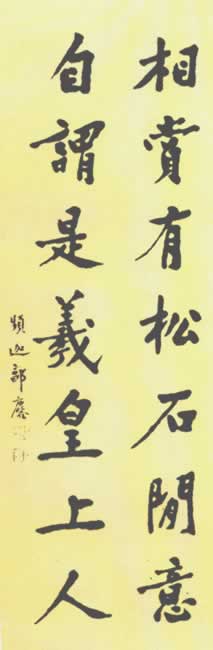 相賞有松石閒意
自謂是羲皇上人
頻迦郭麐